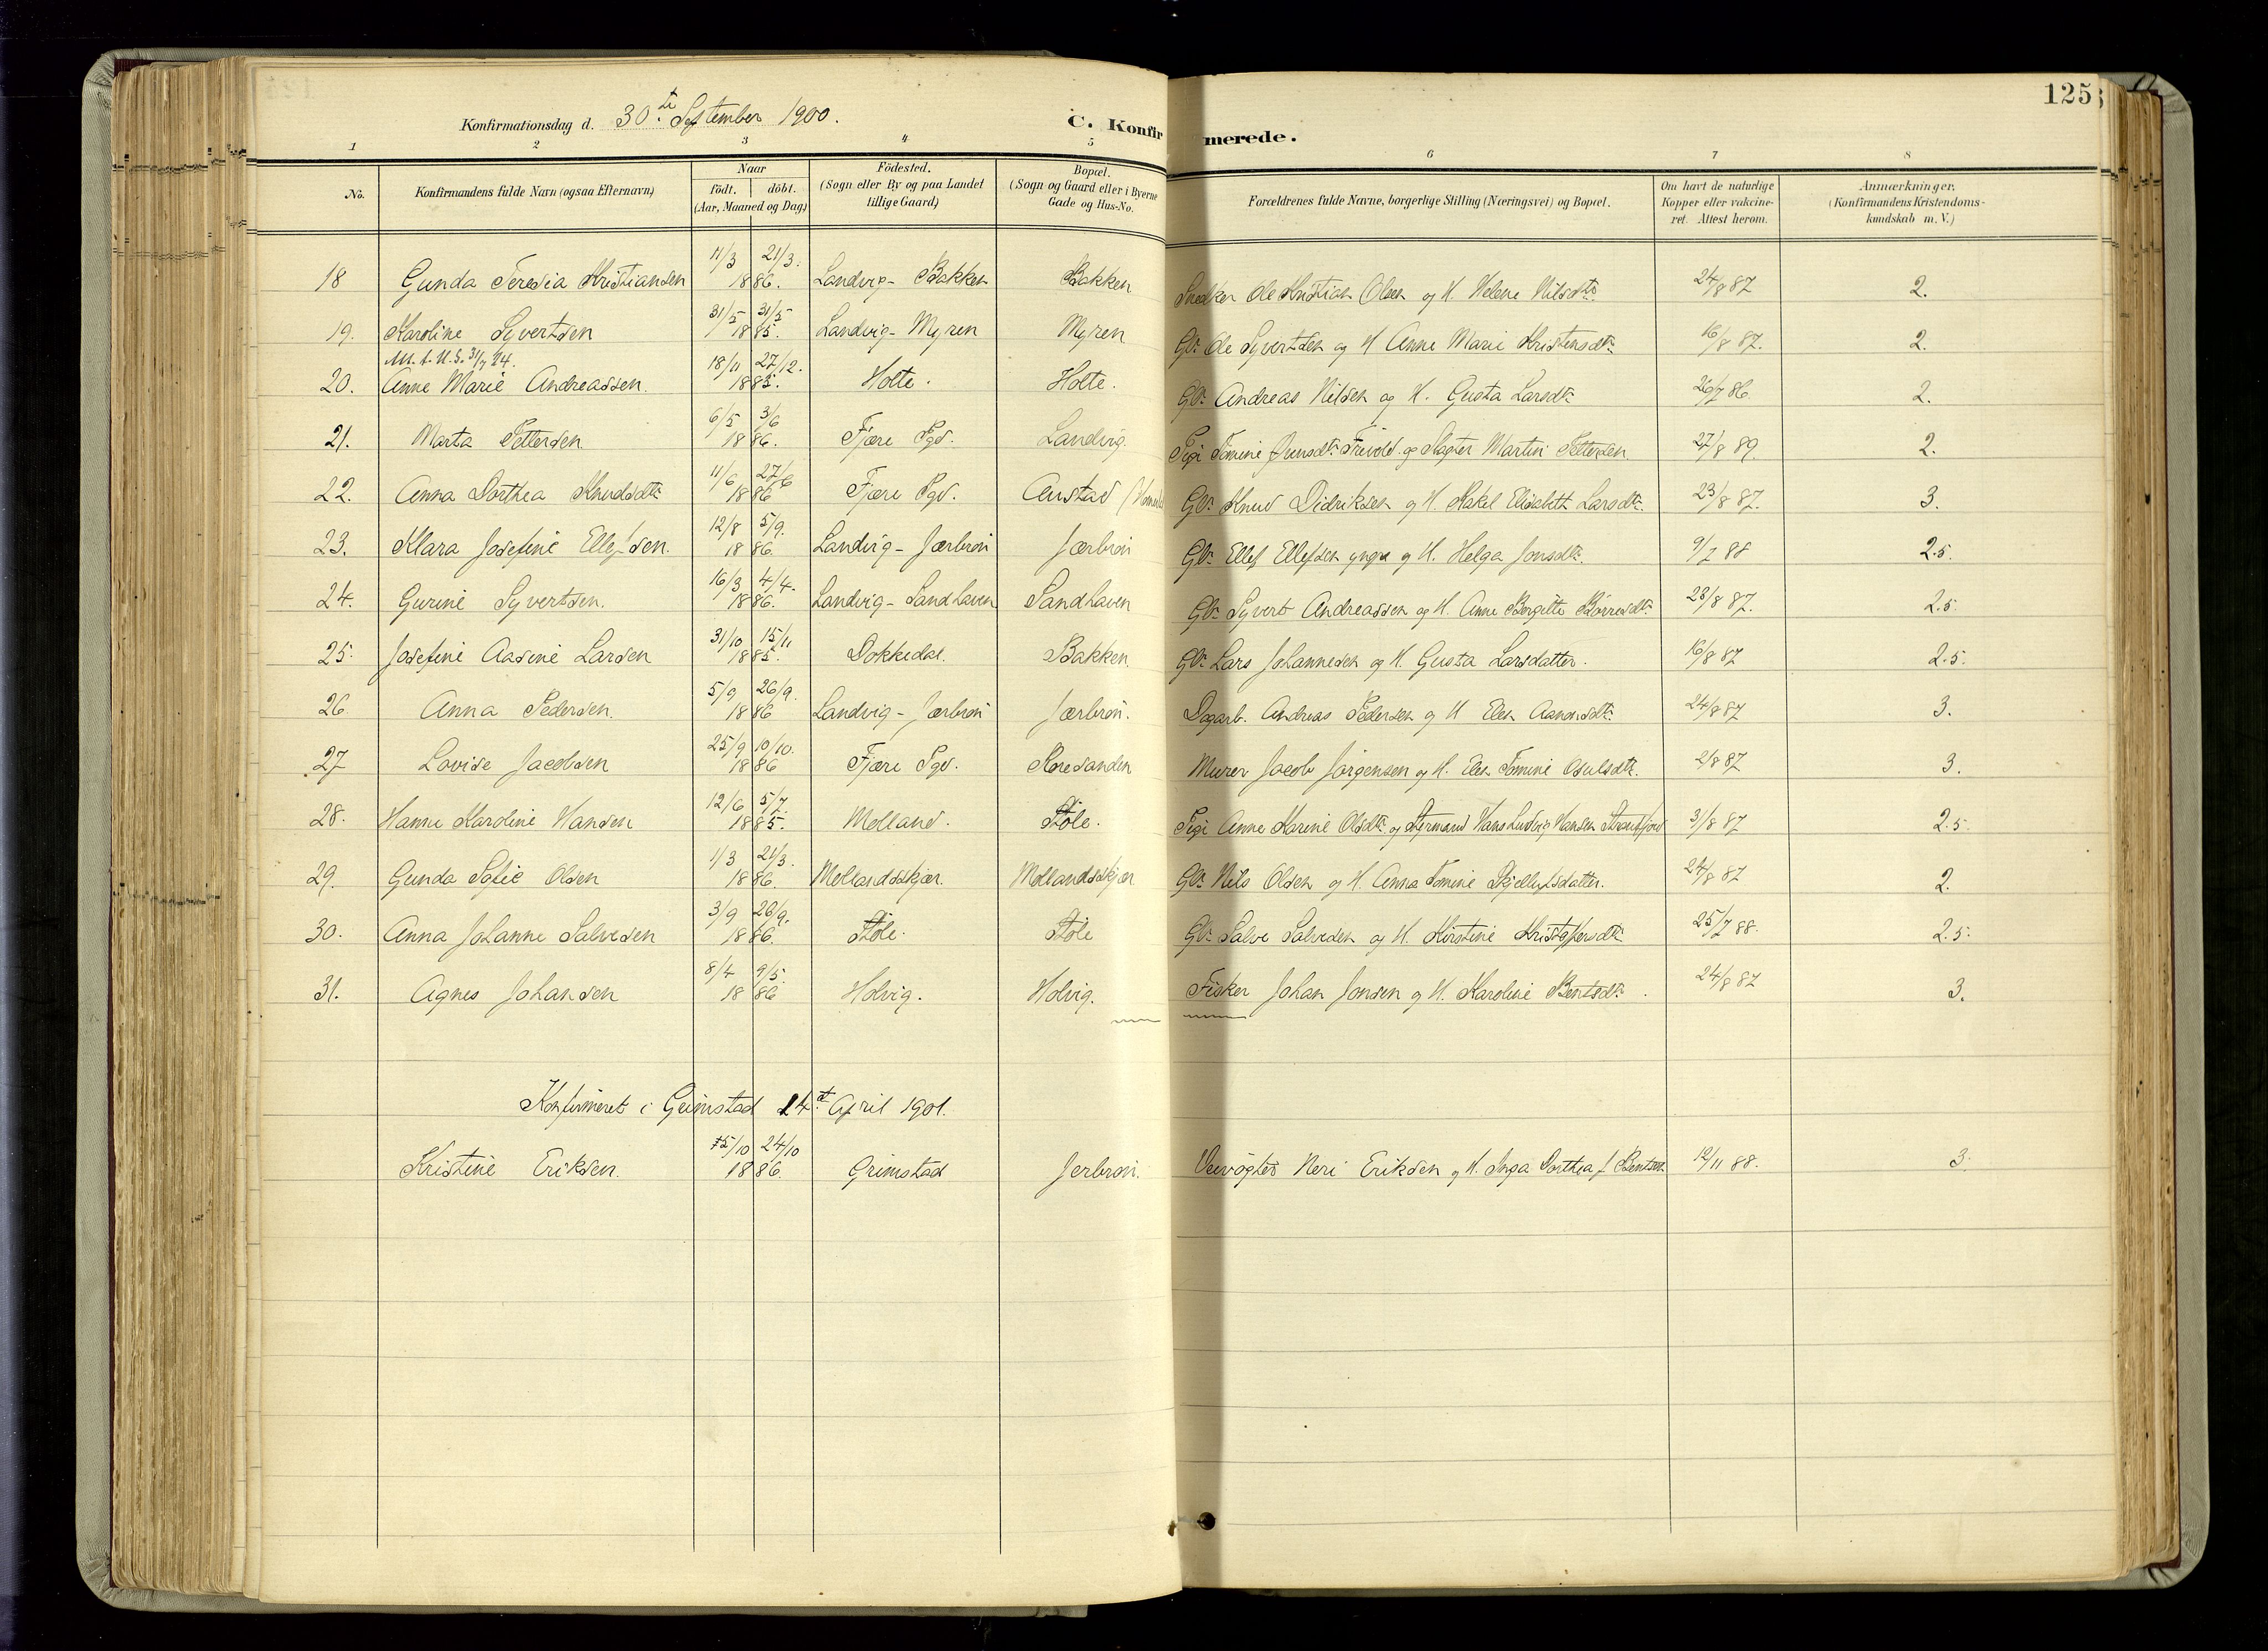 125
Konfirmationsdag d. 30te September 1900.
C. Konfirmerede.
1 2 3 4 5 6 7 8
No. Konfirmandens fulde Navn (ogsaa Efternavn) Naar født. døbt. (Aar, Maaned og Dag) Fødested. (Sogn eller By og paa Landet tillige Gaard) Bopæl. (Sogn og Gaard eller i Byerne Gade og Hus-No. Forældrenes fulde Navne, borgerlige Stilling (Næringsvei) og Bopæl. Om havt de naturlige Kopper eller vakcineret. Attest herom. Anmærkninger. (Konfirmandens Kristendomskundskab m. V.)
18 Gunda Teresia Kristiansen 11/3 21/3. 1886. Landvig - Bakken Bakken Snedker Ole Kristian Olsen og H. Helene Nilsdtr. 24/8 87 2.
19. Karoline Syvertsen 31/5 31/5 1885. Landvig - Myren Myren Gbr. Ole Syvertsen og H Anne Marie Kristensdtr. 16/8 87. 2.
Att. t. U.S. 31/7 24.
20. Anne Marie Andreassen. 18/11 27/12. 1885. Holte. Holte. Gbr. Andreas Nilsen og H. Gusta Larsdtr. 26/7 86 2.
21. Marta Pettersen 6/5 3/6 1886. Fjære Pgd. Landvig. Pige Tomine Jensdtr. Frivold og Slagter Martin Pettersen. 27/8 89. 2.
22. Anna Dorthea Knudsdtr. 11/6 27/6 1886 Fjære Pgd. Austad Gbr. Knud Didriksen og H. Rakel Elisabeth Larsdtr. 23/8 87. 3.
23. Klara Josefine Ellefsen. 12/8 5/9. 1886. Landvig - Jærbron Jærbron Gbr. Ellef Ellefsen yngre og H. Helga Jonsdtr. 9/7 88 2.5.
24. Gurine Syvertsen. 16/3 4/4. 1886. Landvig - Sandhaven Sandhaven Gbr. Syvert Andreassen og H. Anne Bergitte Børresdtr. 23/8 87. 2.5.
25. Josefine Aasine Larsen 31/10 15/11 1885. Dokkedal. Bakken Gbr. Lars Johannesen og H. Gusta Larsdatter. 16/8 87 2.5.
26. Anna Pedersen. 5/9 26/9. 1886 Landvig - Jærbron Jærbron. Dagarb. Andreas Pedersen og H Elen Aanonsdtr. 24/8 87 3.
27 Lovise Jacobsen 25/9 10/10. 1886 Fjære Pgd. Roresanden Murer Jacob Jørgensen og H. Elen Tomine Osulsdtr. 2/8 87 3.
28. Hanne Karoline Hansen 12/6 5/7. 1885. Molland. Støle. Pige Anne Karine Olsdtr. og Styrmand Hans Ludvig Hansen 3/8 87 2.5
29. Gunda Sofie Olsen 1/3 21/3. 1886. Mollandsskjær. Mollandsskjær Gbr. Nils Olsen og H. Anna Tomine Skjellufsdatter. 24/8 87 2.
30. Anna Johanne Salvesen 3/9 26/9. 1886. Støle. Støle Gbr. Salve Salvesen og H. Kirstine Kristofersdtr. 25/7 88. 2.5.
31. Agnes Johansen 8/4 9/5. 1886 Holvig. Holvig. Fisker Johan Jonsen og H. Karoline Bentsdtr. 24/8 87 3.
Konfirmeret i Grimstad 14de April 1901.
Kristine Eriksen. 15/10 24/10 1886. Grimstad Jerbron. Veivogter Neri Eriksen og H. Inga Dorthea f. Bentsen 12/11 88. 3.